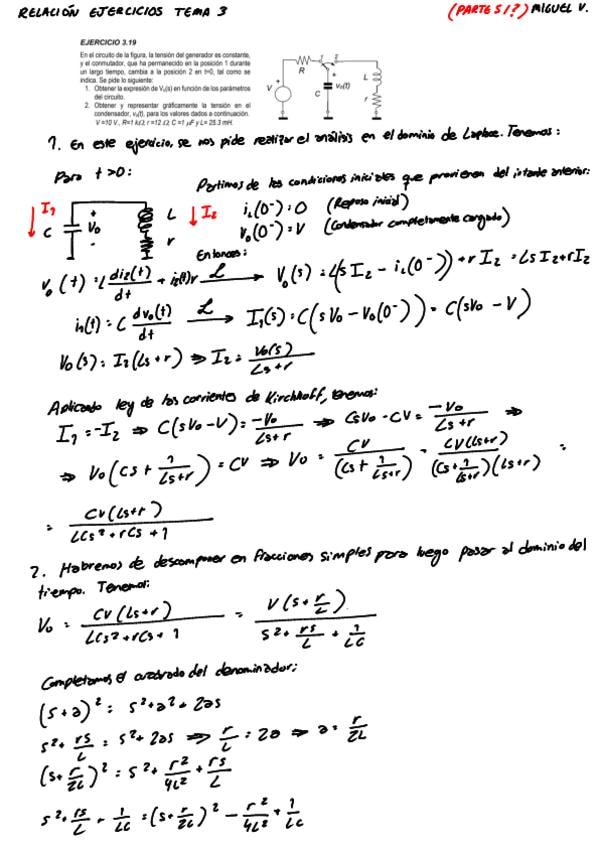 RELACIÓN EJERCICIOS TEMA 3 (PARTE 5/?) MIGUEL V.
EJERCICIO 3.19
En el circuito de la figura, la tensión del generador es constante,
y el conmutador, que ha permanecido en la posición 1 durante
un largo tiempo, cambia a la posición 2 en t=0, tal como se
indica. Se pide lo siguiente:
1. Obtener la expresión de Vₒ(s) en función de los parámetros
del circuito.
2. Obtener y representar gráficamente la tensión en el
condensador, vₒ(t), para los valores dados a continuación.
V =10 V., R=1 kΩ, r =12 Ω, C =1 μF y L= 25.3 mH.
V R 1 2 C vₒ(t) L r
1. En este ejercicio, se nos pide realizar el análisis en el dominio de Laplace. Tenemos:
Para t>0: Partimos de las condiciones iniciales que provienen del instante anterior:
I₁ C + Vo - L r I₂ iL(0⁻)=0 (Reposo inicial)
vo(0⁻)=V (Condensador completamente cargado)
Entonces:
vo(t) = L di₂(t)/dt + i₂(t)r ℒ→ Vo(s) = L(s I₂ - iL(0⁻)) + r I₂ = Ls I₂ + r I₂
i₁(t) = C dvo(t)/dt ℒ→ I₁(s) = C(s Vo - Vo(0⁻)) = C(sVo - V)
Vo(s) = I₂(Ls+r) ⇒ I₂ = Vo(s)/(Ls+r)
Aplicando ley de las corrientes de Kirchhoff, tenemos:
I₁ = -I₂ ⇒ C(sVo-V) = -Vo/(Ls+r) ⇒ CsVo - CV = -Vo/(Ls+r) ⇒
⇒ Vo(Cs + 1/(Ls+r)) = CV ⇒ Vo = CV/(Cs + 1/(Ls+r)) = CV(Ls+r)/((Cs + 1/(Ls+r))(Ls+r)) =
= CV(Ls+r)/(LCs²+rCs+1)
2. Habremos de descomponer en fracciones simples para luego pasar al dominio del
tiempo. Tenemos:
Vo = CV(Ls+r)/(LCs²+rCs+1) = V(s+r/L)/(s² + rs/L + 1/LC)
Completamos el cuadrado del denominador:
(s+a)² = s²+a²+2as
s² + rs/L = s²+2as ⇒ r/L = 2a ⇒ a = r/2L
(s+r/2L)² = s² + r²/4L² + rs/L
s² + rs/L + 1/LC = (s+r/2L)² - r²/4L² + 1/LC